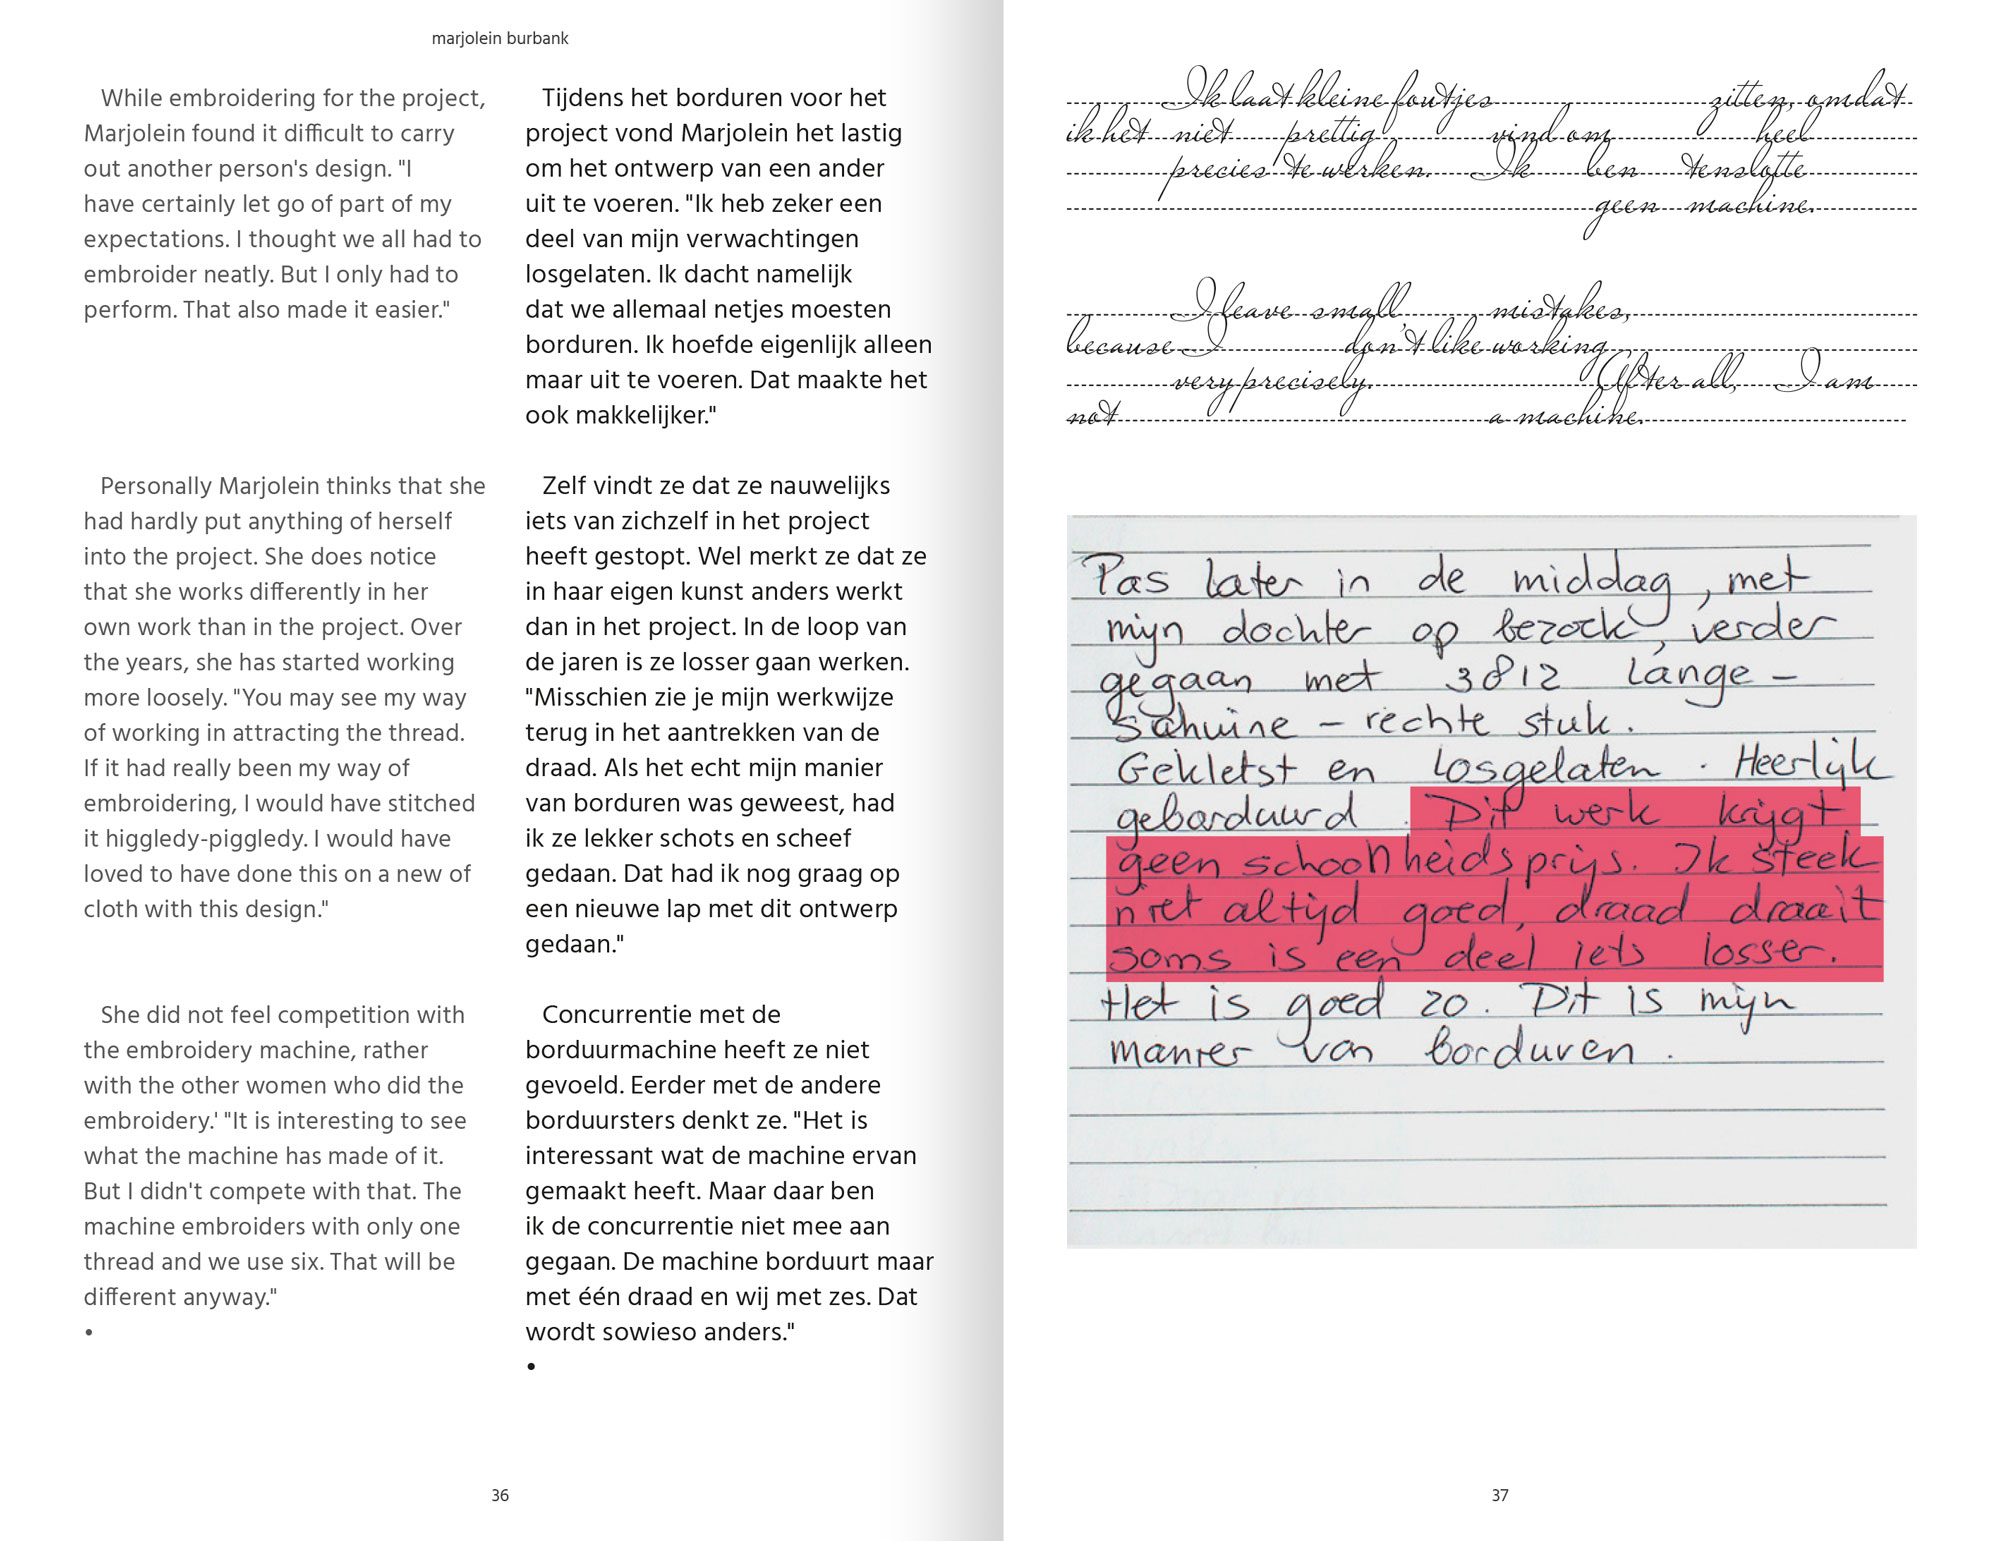 marjolein burbank
While embroidering for the project,
Marjolein found it difficult to carry
out another person's design. "I
have certainly let go of part of my
expectations. I thought we all had to
embroider neatly. But I only had to
perform. That also made it easier."
Personally Marjolein thinks that she
had hardly put anything of herself
into the project. She does notice
that she works differently in her
own work than in the project. Over
the years, she has started working
more loosely. "You may see my way
of working in attracting the thread.
If it had really been my way of
embroidering, I would have stitched
it higgledy-piggledy. I would have
loved to have done this on a new of
cloth with this design."
She did not feel competition with
the embroidery machine, rather
with the other women who did the
embroidery.' "It is interesting to see
what the machine has made of it.
But I didn't compete with that. The
machine embroiders with only one
thread and we use six. That will be
different anyway."
•
Tijdens het borduren voor het
project vond Marjolein het lastig
om het ontwerp van een ander
uit te voeren. "Ik heb zeker een
deel van mijn verwachtingen
losgelaten. Ik dacht namelijk
dat we allemaal netjes moesten
borduren. Ik hoefde eigenlijk alleen
maar uit te voeren. Dat maakte het
ook makkelijker."
Zelf vindt ze dat ze nauwelijks
iets van zichzelf in het project
heeft gestopt. Wel merkt ze dat ze
in haar eigen kunst anders werkt
dan in het project. In de loop van
de jaren is ze losser gaan werken.
"Misschien zie je mijn werkwijze
terug in het aantrekken van de
draad. Als het echt mijn manier
van borduren was geweest, had
ik ze lekker schots en scheef
gedaan. Dat had ik nog graag op
een nieuwe lap met dit ontwerp
gedaan."
Concurrentie met de
borduurmachine heeft ze niet
gevoeld. Eerder met de andere
borduursters denkt ze. "Het is
interessant wat de machine ervan
gemaakt heeft. Maar daar ben
ik de concurrentie niet mee aan
gegaan. De machine borduurt maar
met één draad en wij met zes. Dat
wordt sowieso anders."
•
36
Ik laat kleine foutjes zitten, omdat
ik het niet prettig vind om heel
precies te werken. Ik ben tenslotte
geen machine.
I leave small mistakes,
because I don't like working
very precisely. After all, I am
not a machine.
Pas later in de middag, met
mijn dochter op bezoek, verder
gegaan met 3812 lange –
schuine – rechte stuk.
Gekletst en losgelaten. Heerlijk
geborduurd. Dit werk krijgt
geen schoonheidsprijs. Ik steek
niet altijd goed, draad draait
soms is een deel iets losser.
Het is goed zo. Dit is mijn
manier van borduren.
37